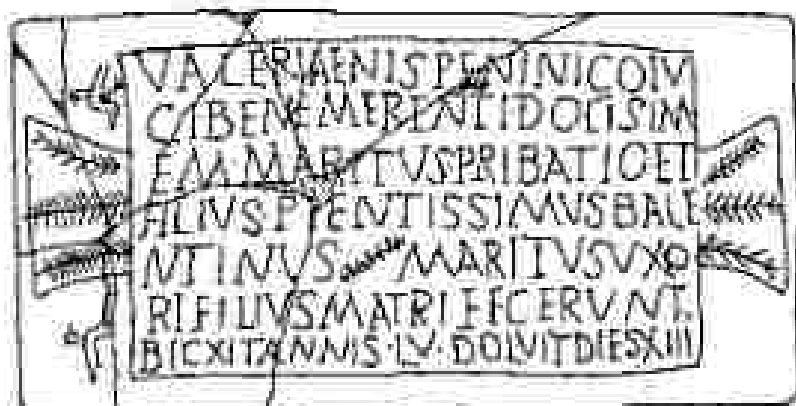 VALERIAENISPENINICOIV
CIBENEMERENTIDOLISIM
EM·MARITVSPRIBATIOET
FILIVSPIENTISSIMVSBALE
NTINVS MARITVSVXO
RIFILIVSMATRIFECERVNT·
BICXITANNIS·LV·DOLVITDIESXIII